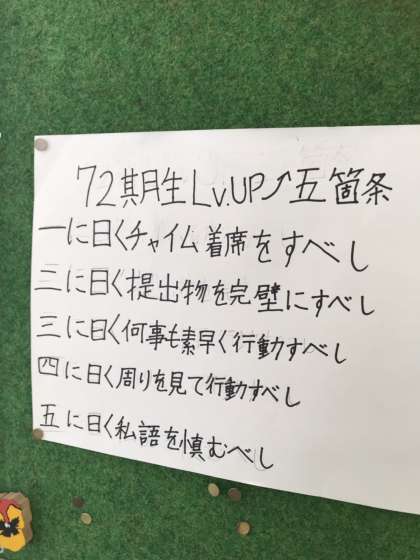 72期生Lv.UP⤴五箇条
一に曰くチャイム着席をすべし
三に曰く提出物を完壁にすべし
三に曰く何事も素早く行動すべし
四に曰く周りを見て行動すべし
五に曰く私語を慎むべし